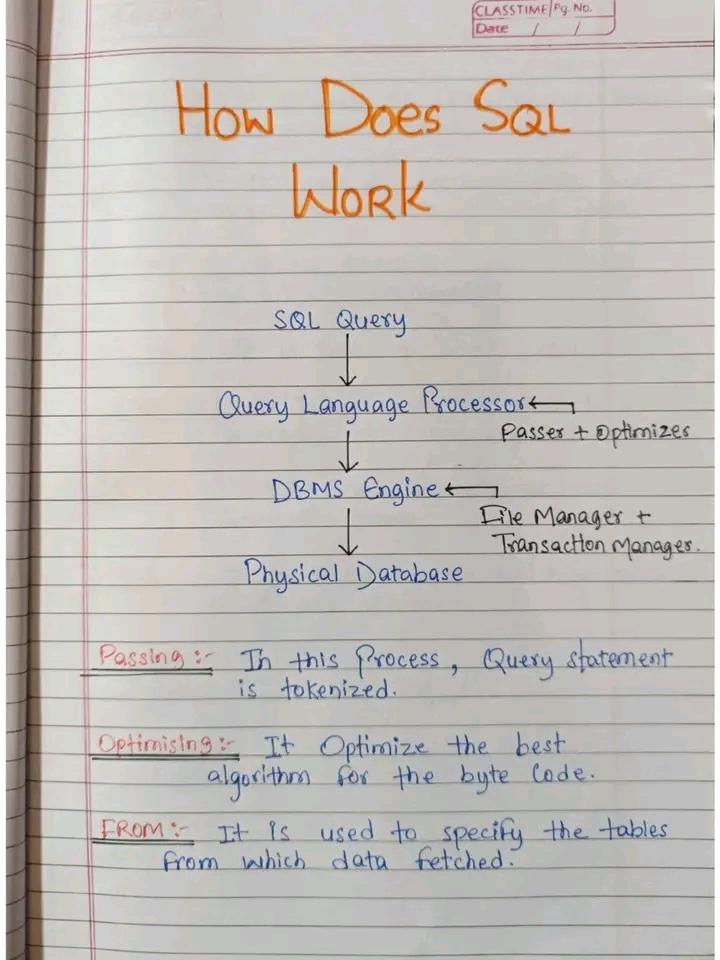 CLASSTIME/Pg. No.
Date / /
How Does SQL
Work
SQL Query
Query Language Processor
Passer + Optimizer
DBMS Engine
File Manager +
Transaction Manager.
Physical Database
Passing :- In this Process, Query statement
is tokenized.
Optimising :- It Optimize the best
algorithm for the byte Code.
FROM :- It is used to specify the tables
from which data fetched.